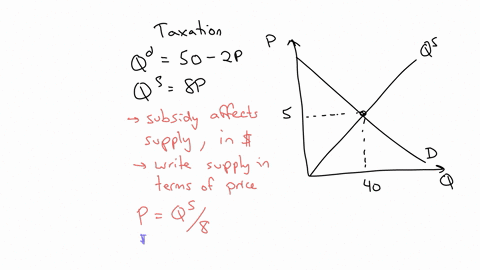 Taxation
Q^d = 50 - 2P
Q^s = 8P
→ subsidy affects
supply, in $
→ write supply in
terms of price
P = Q^s/8
P
Q^s
5
D
40
Q